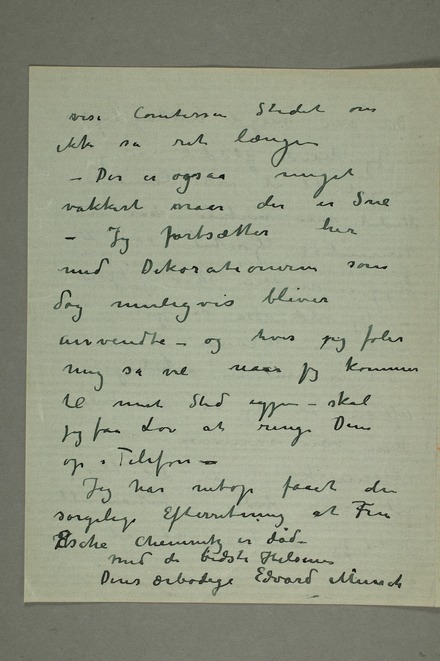 vise Comtessen Stedet om
ikke så ret længe
– Der er ogsaa meget
vakkert naar der er Sne
– Jeg fortsætter her
med Dekorationerne som
dog muligvis bliver
anvendte – og hvis jeg føler
mig så vel naar jeg kommer
til mit Sted igjen – skal
jeg faa Lov at ringe Dem
op i Telefon –
Jeg har netop faaet den
sørgelige Efterretning at Fru
Esche Chemnitz er død –
med de bedste Hilsener
Deres ærbødige Edvard Munch